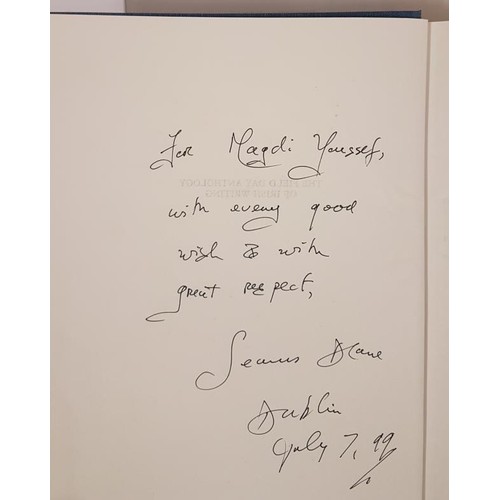 For Magdi Youssef,
THE FIELD DAY ANTHOLOGY
OF IRISH WRITING
with every good
wish & with
great respect,
Seamus Deane
Dublin
July 7, 99